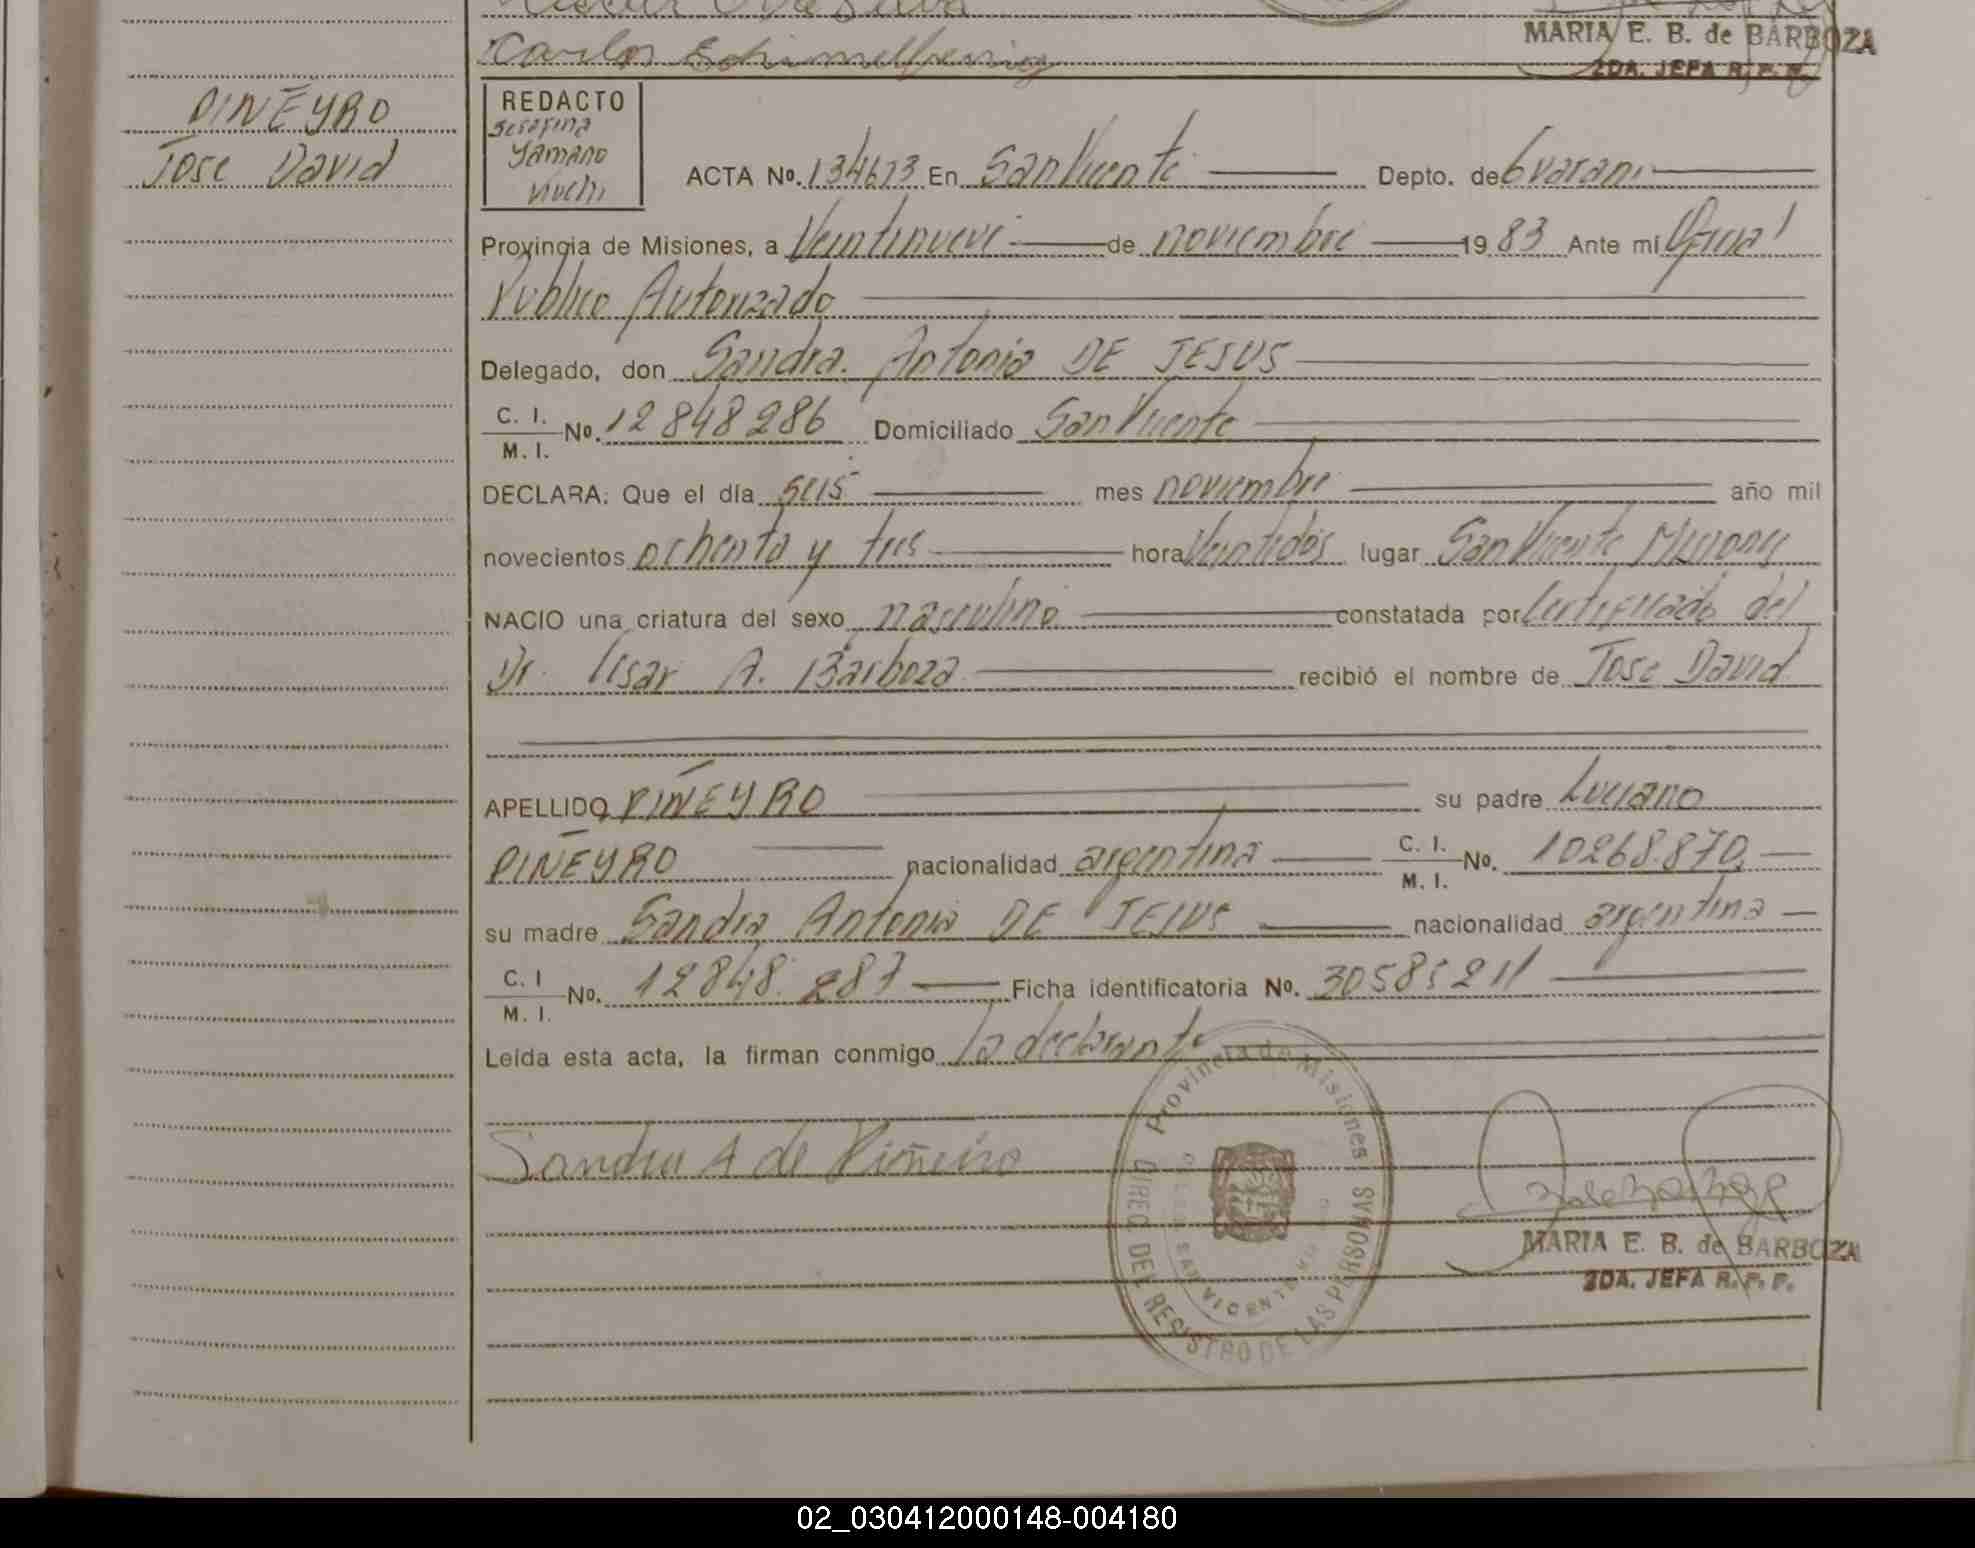 Carlos Schimelfenig
MARIA E. B. de BARBOZA
2DA. JEFA R. P. P.
PIÑEYRO
Jose David
REDACTO
Serafina
Yamano
Viuchi
ACTA Nº. 134673 En San Vicente Depto. de Guarani
Provincia de Misiones, a Veintinueve de noviembre 1983 Ante mí Oficial
Publico Autorizado
Delegado, don Sandra Antonia DE JESUS
C. I.
M. I. Nº. 12848286 Domiciliado San Vicente
DECLARA: Que el día seis mes noviembre año mil
novecientos ochenta y tres hora Veintidós lugar San Vicente Misiones
NACIO una criatura del sexo masculino constatada por Certificado del
Dr. Cesar A. Barboza recibió el nombre de Jose David
APELLIDO PIÑEYRO su padre Luciano
PIÑEYRO nacionalidad argentina C. I.
M. I. Nº. 10268.870
su madre Sandra Antonia DE JESUS nacionalidad argentina
C. I
M. I. Nº. 12848.287 Ficha identificatoria Nº. 30585211
Leída esta acta, la firman conmigo la declarante
Sandra A de Piñeiro
Provincia de Misiones
DIREC. DEL REGISTRO DE LAS PERSONAS
SAN VICENTE
MARIA E. B. de BARBOZA
2DA. JEFA R. P. P.
02_030412000148-004180